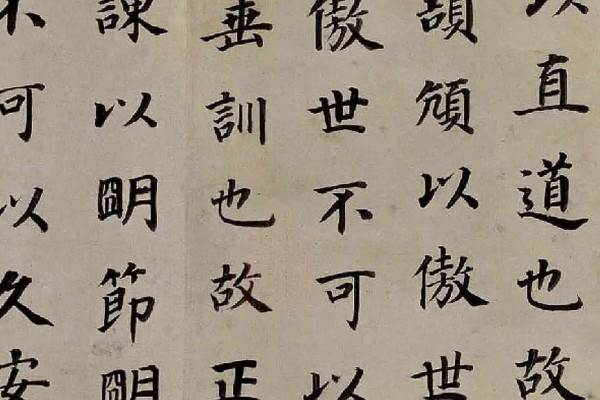 以直道也故
頡頏以傲世
傲世不可以
垂訓也故正
諫以朙節朙
不可以久安